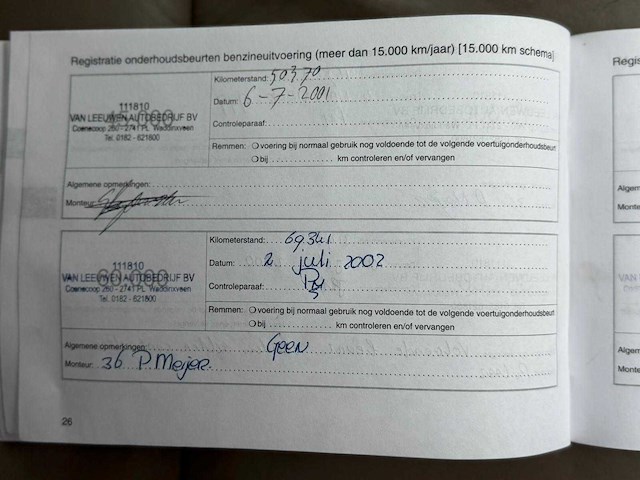 Registratie onderhoudsbeurten benzineuitvoering (meer dan 15.000 km/jaar) [15.000 km schema]
111810
VAN LEEUWEN AUTOBEDRIJF BV
Coenecoop 260 - 2741 PL Waddinxveen
Tel. 0182 - 621800
Kilometerstand: 50370
Datum: 6-7-2001
Controleparaaf:
Remmen: voering bij normaal gebruik nog voldoende tot de volgende voertuigonderhoudsbeurt
bij km controleren en/of vervangen
Algemene opmerkingen:
Monteur:
60.000
111810
VAN LEEUWEN AUTOBEDRIJF BV
Coenecoop 260 - 2741 PL Waddinxveen
Tel. 0182 - 621800
Kilometerstand: 69.341
Datum: 2 juli 2002
Controleparaaf:
Remmen: voering bij normaal gebruik nog voldoende tot de volgende voertuigonderhoudsbeurt
bij km controleren en/of vervangen
Algemene opmerkingen: Geen
Monteur: 36 P. Meijer.
26
Regis
Algem
Monte
VAN
Co
Algem
Monte